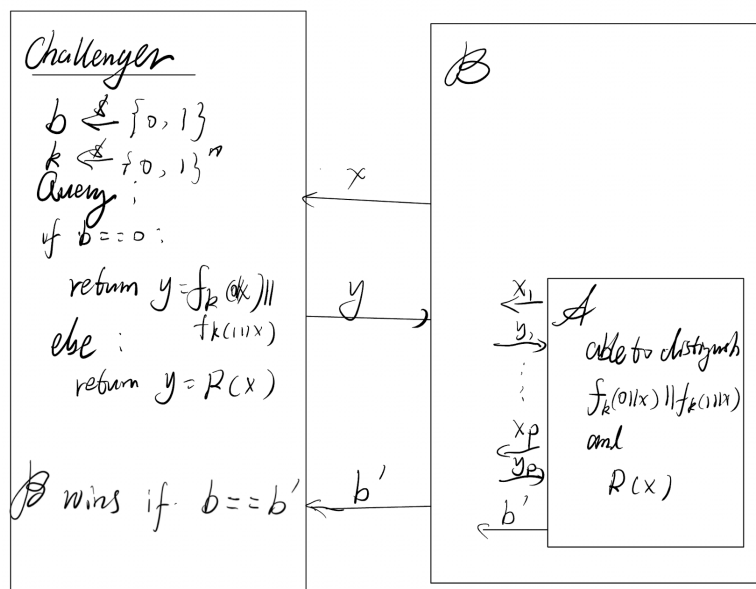 Challenger
b $← {0, 1}
k $← {0, 1}^n
Query :
if b==0 :
return y=f_k(0||x)||
f_k(1||x)
else :
return y=R(x)
B wins if b==b'
x
y
b'
B
x_1
y_1
⋮
x_p
y_p
b'
A
able to distingush
f_k(0||x)||f_k(1||x)
and
R(x)